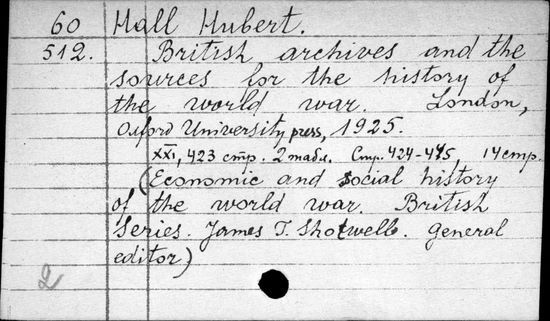 60 Hall Hubert.
512. British archives and the
sources for the history of
the world war. London,
Oxford University press, 1925.
XXI, 423 стр. 2 табл. Стр. 424-445, 14 стр.
(Economic and social history
of the world war. British
Series. James T. Shotwell. General
editor)
2